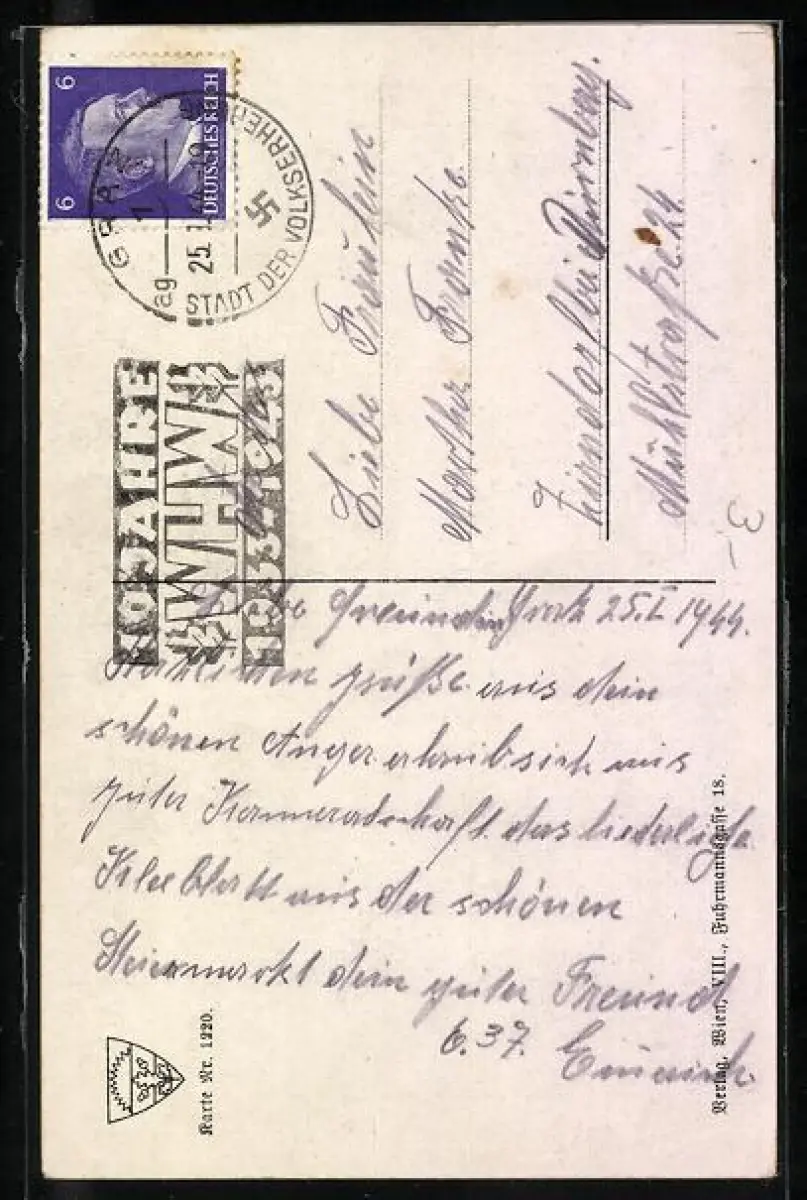 6 6
DEUTSCHES REICH
GRAZ
1
25.1
ag
STADT DER VOLKSERHEBUNG
10 JAHRE
WHW
1933-1943
Liebe Fräulein
Martha Franke
Zirndorf bei Nürnberg.
Mühlstraße 24
3.-
Liebe Freundin Graz 25.I 1944.
grüße aus dem
schönen aus
guter Kameradschaft das liederliche
Kleeblatt aus der schönen
Steiermarkt dein guter Freund
6.37.
Karte Nr. 1220.
Verlag, Wien, VIII., Fuhrmannsgasse 18.